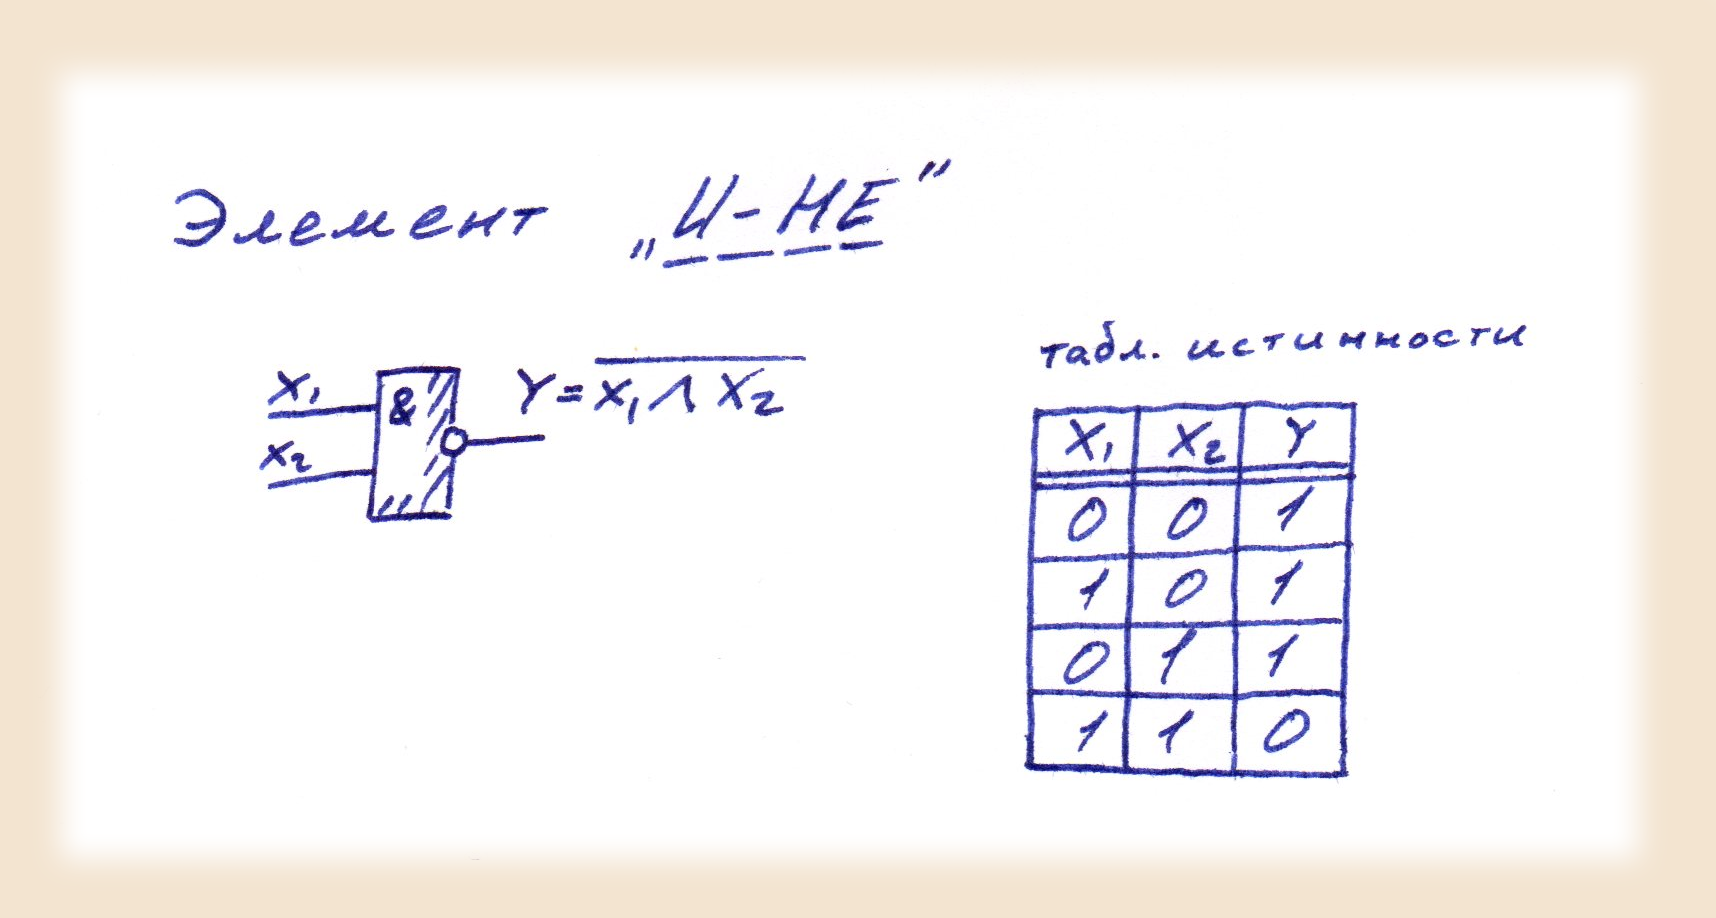 Элемент „И-НЕ”
X₁
&
Y = \overline{X₁ ∧ X₂}
X₂
табл. истинности
X₁ X₂ Y
0 0 1
1 0 1
0 1 1
1 1 0